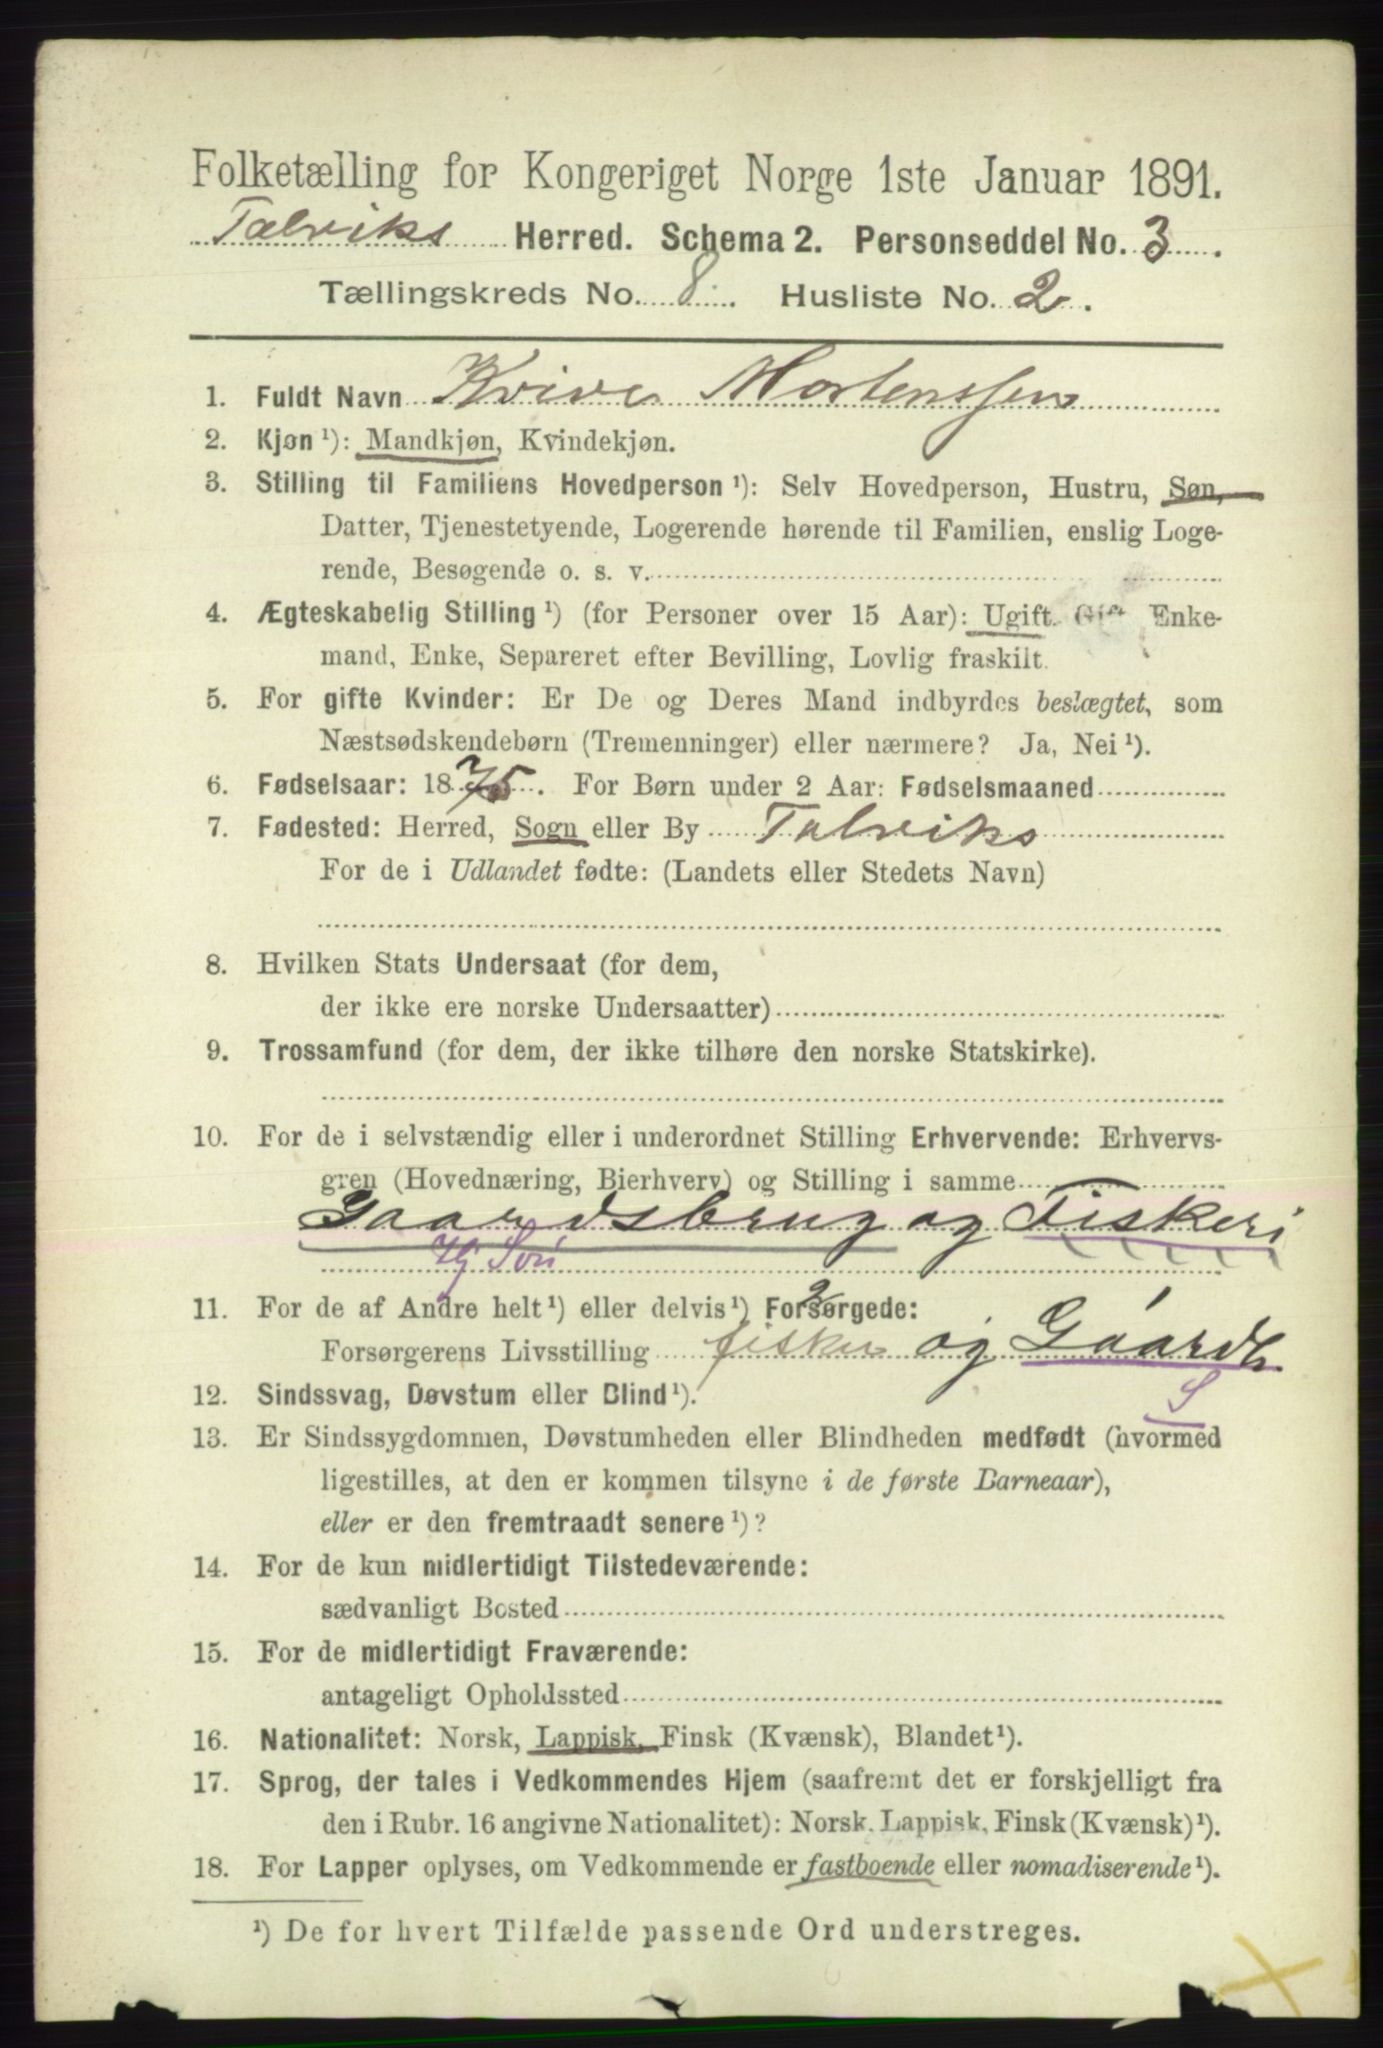 Folketælling for Kongeriget Norge 1ste Januar 1891.
Talviks Herred. Schema 2. Personseddel No. 3.
Tællingskreds No. 8. Husliste No. 2.
1. Fuldt Navn Mortenssen
2. Kjøn¹): Mandkjøn, Kvindekjøn.
3. Stilling til Familiens Hovedperson¹): Selv Hovedperson, Hustru, Søn,
Datter, Tjenestetyende, Logerende hørende til Familien, enslig Loge-
rende, Besøgende o. s. v.
4. Ægteskabelig Stilling¹) (for Personer over 15 Aar): Ugift, Gift, Enke-
mand, Enke, Separeret efter Bevilling, Lovlig fraskilt.
5. For gifte Kvinder: Er De og Deres Mand indbyrdes beslægtet, som
Næstsødskendebørn (Tremenninger) eller nærmere? Ja, Nei¹).
6. Fødselsaar: 1875. For Børn under 2 Aar: Fødselsmaaned
7. Fødested: Herred, Sogn eller By Talviks
For de i Udlandet fødte: (Landets eller Stedets Navn)
8. Hvilken Stats Undersaat (for dem,
der ikke ere norske Undersaatter)
9. Trossamfund (for dem, der ikke tilhøre den norske Statskirke).
10. For de i selvstændig eller i underordnet Stilling Erhvervende: Erhvervs-
gren (Hovednæring, Bierhverv) og Stilling i samme
Gaardsbrug og Fiskeri
Hj Søn
11. For de af Andre helt¹) eller delvis¹) Forsørgede:
2
Forsørgerens Livsstilling fisker og Gaardb
S
12. Sindssvag, Døvstum eller Blind¹).
13. Er Sindssygdommen, Døvstumheden eller Blindheden medfødt (hvormed
ligestilles, at den er kommen tilsyne i de første Barneaar),
eller er den fremtraadt senere¹)?
14. For de kun midlertidigt Tilstedeværende:
sædvanligt Bosted
15. For de midlertidigt Fraværende:
antageligt Opholdssted
16. Nationalitet: Norsk, Lappisk, Finsk (Kvænsk), Blandet¹).
17. Sprog, der tales i Vedkommendes Hjem (saafremt det er forskjelligt fra
den i Rubr. 16 angivne Nationalitet): Norsk, Lappisk, Finsk (Kvænsk)¹).
18. For Lapper oplyses, om Vedkommende er fastboende eller nomadiserende¹).
¹) De for hvert Tilfælde passende Ord understreges.